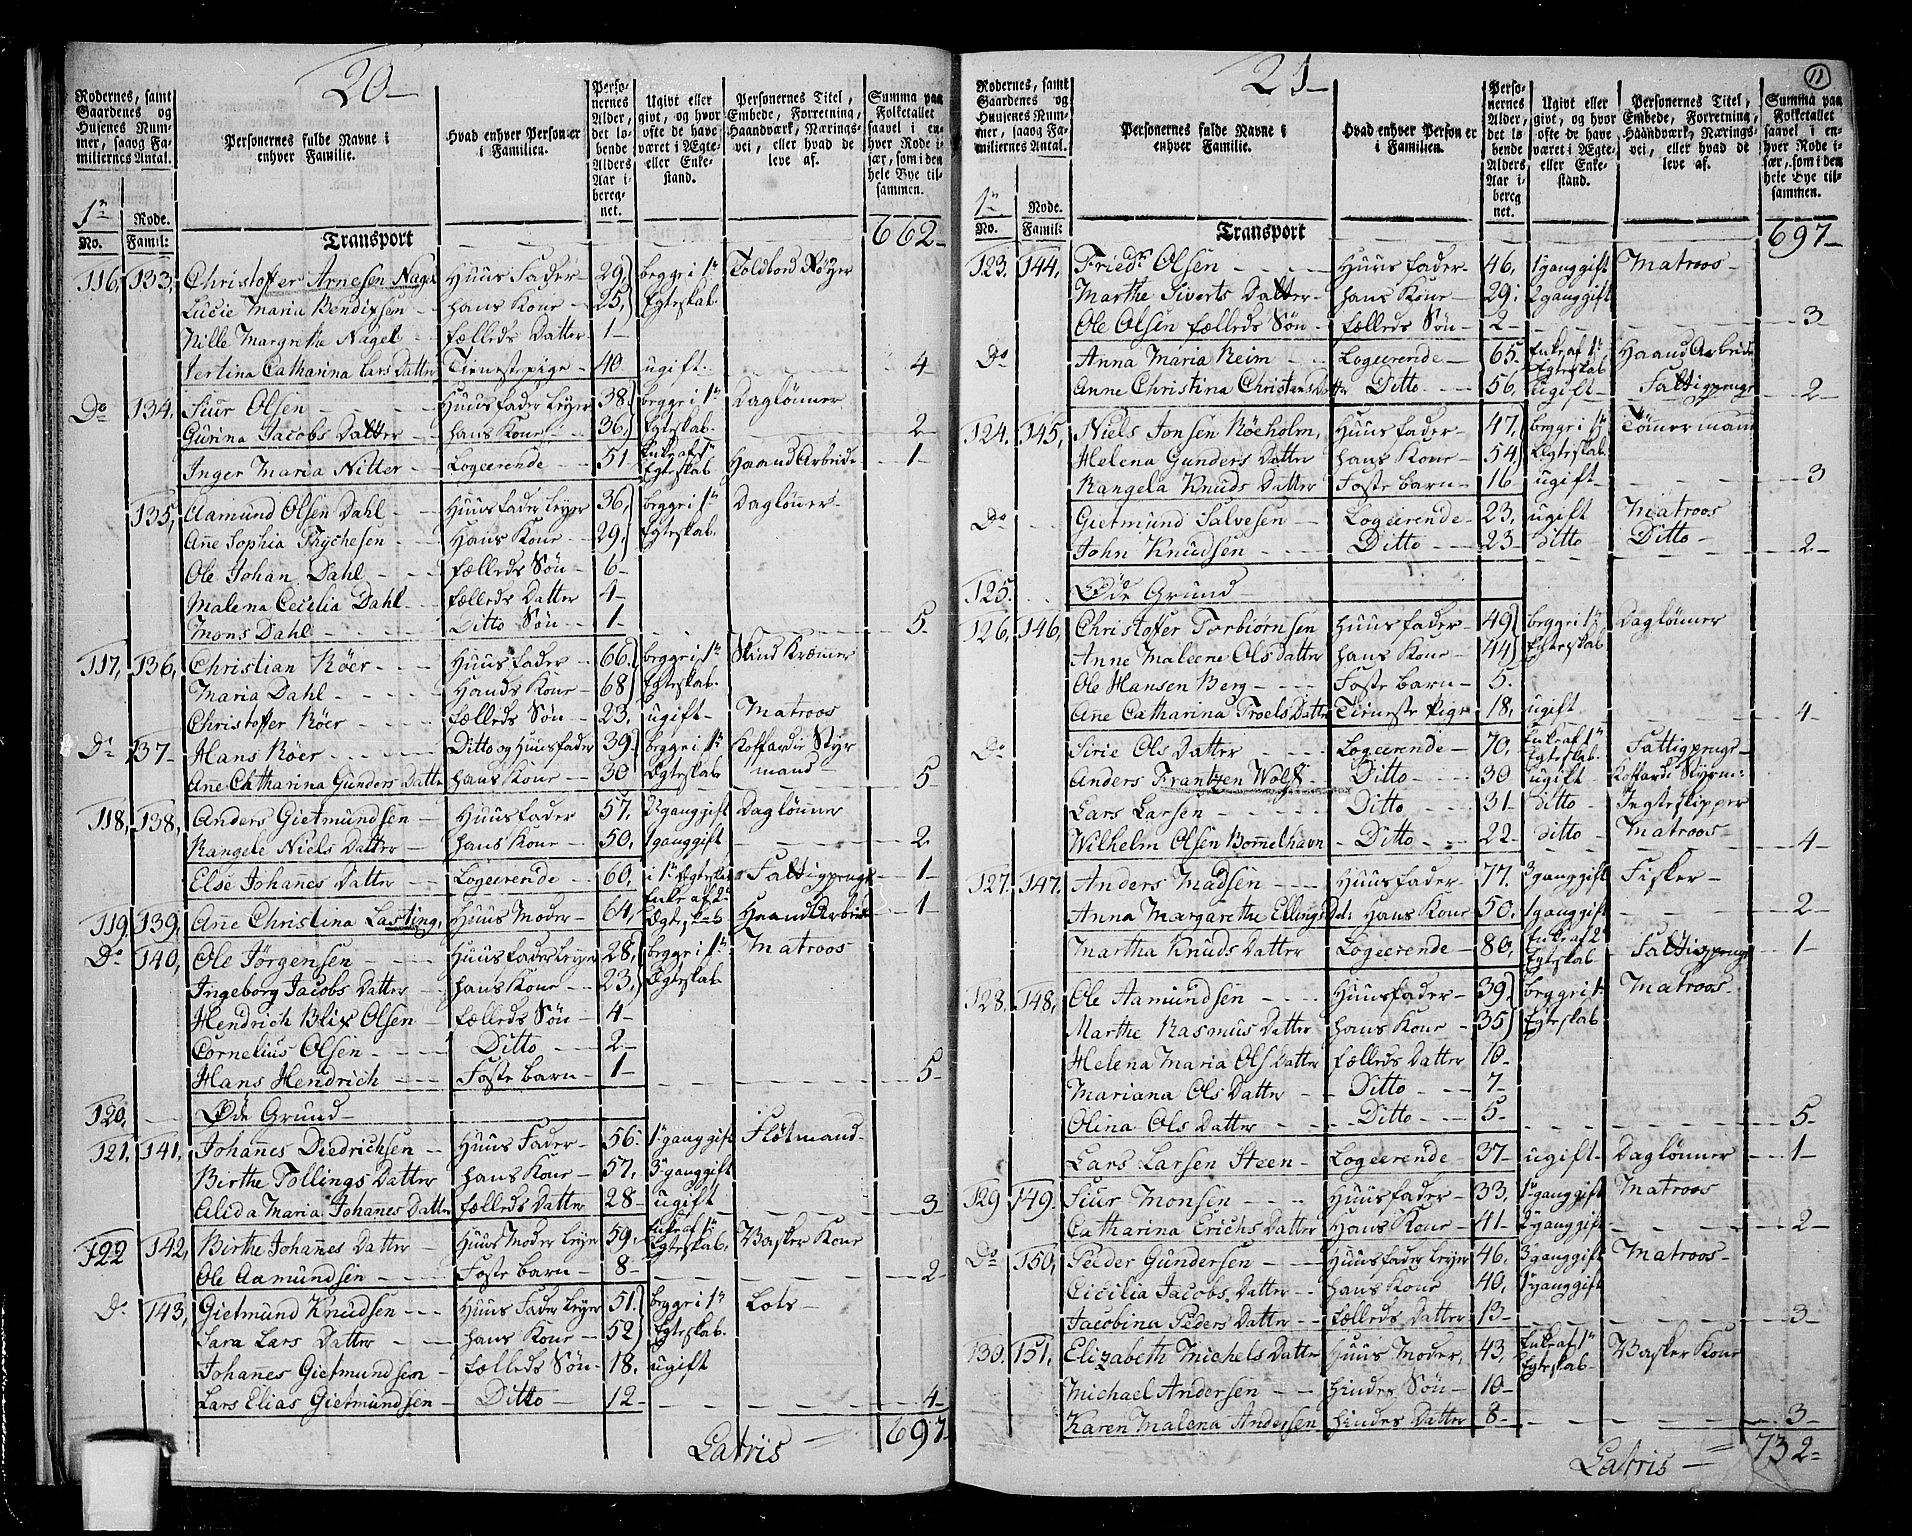 20
Rodernes, samt Gaardenes og Husenes Nummer, saaog Familiernes Antal.
Personernes fulde Navne i enhver Familie.
Hvad enhver Person er i Familien.
Personernes Alder, det løbende Alders Aar iberegnet.
Ugivt eller givt, og hvor ofte de have været i Ægte- eller Enkestand.
Personernes Titel, Embede, Forretning, Haandværk, Næringsvei, eller hvad de leve af.
Summa paa Folketallet saavel i enhver Rode især, som i den hele Bye tilsammen.
1ste Rode.
No. Famil:
Transport 662
116, 133, Christoffer Arnesen Nagel Huus Fader 29, begge i 1te Toldbod Røyer 
Lucie Maria Bendixsen hans Kone 25, Egteskab
Nille Margrethe Nagel fælleds Datter 1
Sertina Catharina Lars Datter Tieneste pige 40 ugift 4
Do 134, Siur Olsen Huusfader Leyer 38. begge i 1te Daglønner
Gurina Jacobs Datter hans Kone 36, Egteskab 2
Inger Maria Nitter Logeerende 51 Enke af 1te Egteskab Haand Arbeide 1
135, Aamund Olsen Dahl Huusfader Leyer 36, begge i 1te Daglønner
Anne Sophia Thychesen Hans Kone 29, Egteskab
Ole Johan Dahl fælleds Søn 6
Malena Cecilia Dahl fælleds Datter 4
Mons Dahl Ditto Søn 1 5
117, 136, Christian Röer Huusfader 66. begge i 1te Skind Kræmmer
Maria Dahl Hands Kone 68 Egteskab
Christoffer Röer fælleds Søn 23, ugift Matroos
Do 137 Hans Röer Ditto og Huusfader 39 begge i 1te Koffardie Styr
Anne Catharina Gunders Datter hans Kone 30 Egteskab mand 5
118, 138, Anders Gietmundsen Huusfader 57, 2 gang gift Daglønner
Rangele Niels Datter hans Kone 50, 1 gang gift 2
Else Johannes Datter Logeerende 60, i 1te Egteskab Fattigpenge 1
119, 139, Ane Christina Lasting, Huus Moder 64, Enke af 2det Ægteskab Haand Arbeid 1
Do 140, Ole Jörgensen Huusfader Leyer 28, begge i 1te Matroos
Ingeborg Jacobs Datter hans Kone 23, Egteskab
Hendrich Blix Olsen fælleds Søn 4
Cornelius Olsen Ditto 2
Hans Hendrich Foste barn 1 5
120, Øde Grund
121, 141, Johanes Diedrichsen Huus Fader 56 1 gang gift Flötmand
Birthe Tollings Datter hans Kone 57, 3 gang gift
Alida Maria Johanes Datter fælleds Datter 28 ugift 3
122 142, Birthe Johannes Datter Huus Moder Leyer 59, Enke af 1te Egteskab. Vasker Kone
Ole Aamundsen Foste barn 8 2
Do 143, Gietmund Knudsen Huus Fader Leyer 51, begge i 1te Lots
Sara Lars Datter hans Kone 52 Egteskab
Johannes Gietmundsen fælleds Søn 18, ugift
Lars Elias Gietmundsen Ditto 12 4
Latris 697
21
11
Rodernes, samt Gaardenes og Huusenes Nummer, saaog Familiernes Antal.
Personernes fulde Navne i enhver Familie.
Hvad enhver Person er i Familien.
Personernes Alder, det løbende Alders Aar iberegnet.
Ugivt eller givt, og hvor ofte de have været i Ægte- eller Enkestand.
Personernes Titel, Embede, Forretning, Haandværk, Næringsvei, eller hvad de leve af.
Summa paa Folketallet saavel i enhver Rode især, som i den hele Bye tilsammen.
1ste Rode.
No. Famil:
Transport 697
123. 144, Friedk Olsen Huus fader 46, 1 gang gift Matroos
Marthe Siverts Datter hans Kone 29 2 gang gift
Ole Olsen fælleds Søn fælleds Søn 2 3
Do Anna Maria Reim Logeerende 65. Enke af 1te Egteskab Haand Arbeide
Anne Christina Christens Datter Ditto 56, ugift Fattigpenge 2
124. 145, Niels Jonsen Röeholm, Huus fader 47, begge i 1te Tömermand
Helena Gunders Datter hans Kone 54 Egteskab
Rangela Knuds Datter Foste barn 16 ugift 3
Do Gietmund Salvesen Logeerende 23, ugift Matroos
John Knudsen Ditto 23 ditto Ditto 2
125. Øde Grund
126, 146, Christoffer Torbiörnsen Huusfader 49 begge i 1te Daglønner
Anne Maleene Ols Datter hans Kone 44 Egteskab
Ole Hansen Berg Foste barn 5
Anne Catharina Troels Datter Tieneste Pige 18, ugift 4
Do Sirie Ols Datter Logeerende 70. Enke af 1te Egteskab. Fattigpenge
Anders Frantzen Wolff Ditto 30 ugift Koffardi Styrm:
Lars Larsen Ditto 31 ditto Jegteskipper
Wilhelm Olsen Bommelhavn Ditto 22 ditto Matroos 4
127. 147, Anders Madsen Huusfader 77. 3 gang gift Fisker
Anna Margarethe Ellings Dat: Hans Kone 50, 1 gang gift 2
Martha Knuds Datter Logeerende 80, Enke af 2 Egteskab Fattigpenge 1
128. 148, Ole Aamundsen Huusfader 39 begge i 1 Matroos
Marthe Rasmus Datter hans Kone 35 Egteskab
Helena Maria Ols Datter fælleds Datter 10
Mariana Ols Datter Ditto 7
Olina Ols Datter Ditto 5 5
Lars Larsen Steen Logeerende 37 ugift Daglønner 1
129 149. Siur Monsen Huusfader 33, 1 gang gift Matroos
Catharina Erichs Datter Hans Kone 41 2 gang gift 2
Do 150, Peder Gundersen Huusfader Leyer 46, 3 gang gift Matroos
Cicilia Jacobs Datter hans Kone 40, 1 gang gift
Jacobina Peders Datter fælleds Datter 13 3
130. 151, Elizabeth Michels Datter Huus Moder, 43, Enke af 1te Egteskab Vasker Kone
Michael Andersen hindes Søn 10
Karen Malena Andersen hindes Datter 8 3
Latris 732